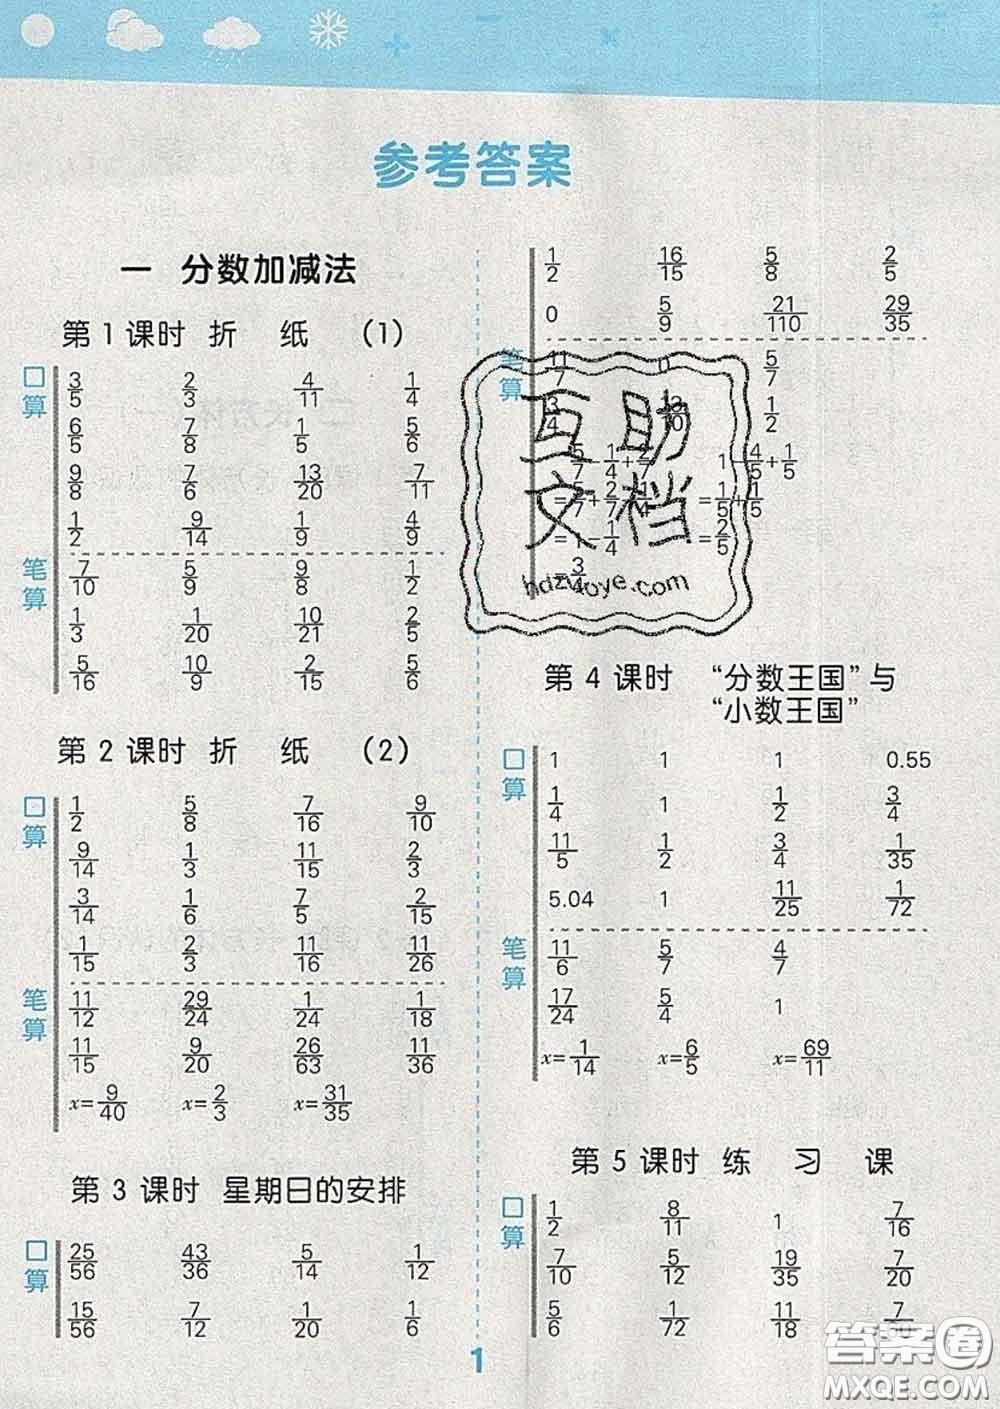 参考答案
一 分数加减法
第1课时 折 纸 (1)
口算
3/5 2/3 4/11 1/4
6/5 7/8 1/5 5/6
9/8 7/6 13/20 7/11
1/2 9/14 1/9 4/9
笔算
7/10 5/9 9/8 1/2
1/3 1/20 10/21 2/5
5/16 10/9 2/15 5/6
第2课时 折 纸 (2)
口算
1/2 5/8 7/16 9/10
9/14 1/3 11/15 2/3
3/14 1/6 7/5 2/15
1/15 2/3 11/16 11/26
笔算
11/12 29/24 1/24 1/18
11/15 9/20 26/63 11/36
x=9/40 x=2/3 x=31/35
第3课时 星期日的安排
口算
25/56 43/36 5/14 1/12
15/56 7/12 1/20 1/6
1/2 16/15 5/8 2/5
0 5/9 21/110 29/35
笔算
11/7 0 5/7
3/4 3/10 1/2
5/7-1/4+2/7 1-4/5+1/5
=5/7+2/7-1/4 =1/5+1/5
=1-1/4 =2/5
=3/4
互助
文档
hdzuoye.com
第4课时 “分数王国”与
“小数王国”
口算
1 1 1 0.55
1/4 1 1/2 3/4
11/5 1/2 3/4 1/35
5.04 1 11/25 1/72
笔算
11/6 5/7 4/7
17/24 5/4 1
x=1/14 x=6/5 x=69/11
第5课时 练 习 课
口算
1/2 8/11 1 7/16
7/10 5/12 19/35 7/20
5/6 1/72 11/18
1
答案圈
MXQE.COM